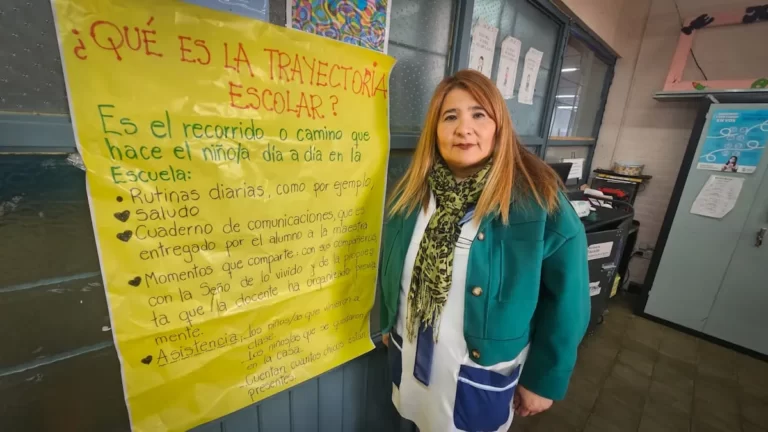 ¿QUÉ ES LA TRAYECTORIA
ESCOLAR?
Es el recorrido o camino que
hace el niño/a día a día en la
Escuela:
Rutinas diarias, como por ejemplo:
saludo
Cuaderno de comunicaciones, que es
entregado por el alumno a la maestra
Momentos que comparte con sus compañeros,
con la Seño de lo vivido y de la propues
ta que la docente ha organizado previa
mente.
Asistencia, los niños/as que vinieron a
clase
los niños/as que se quedaron
en la casa.
Cuentan cuántos chicos están
presentes.